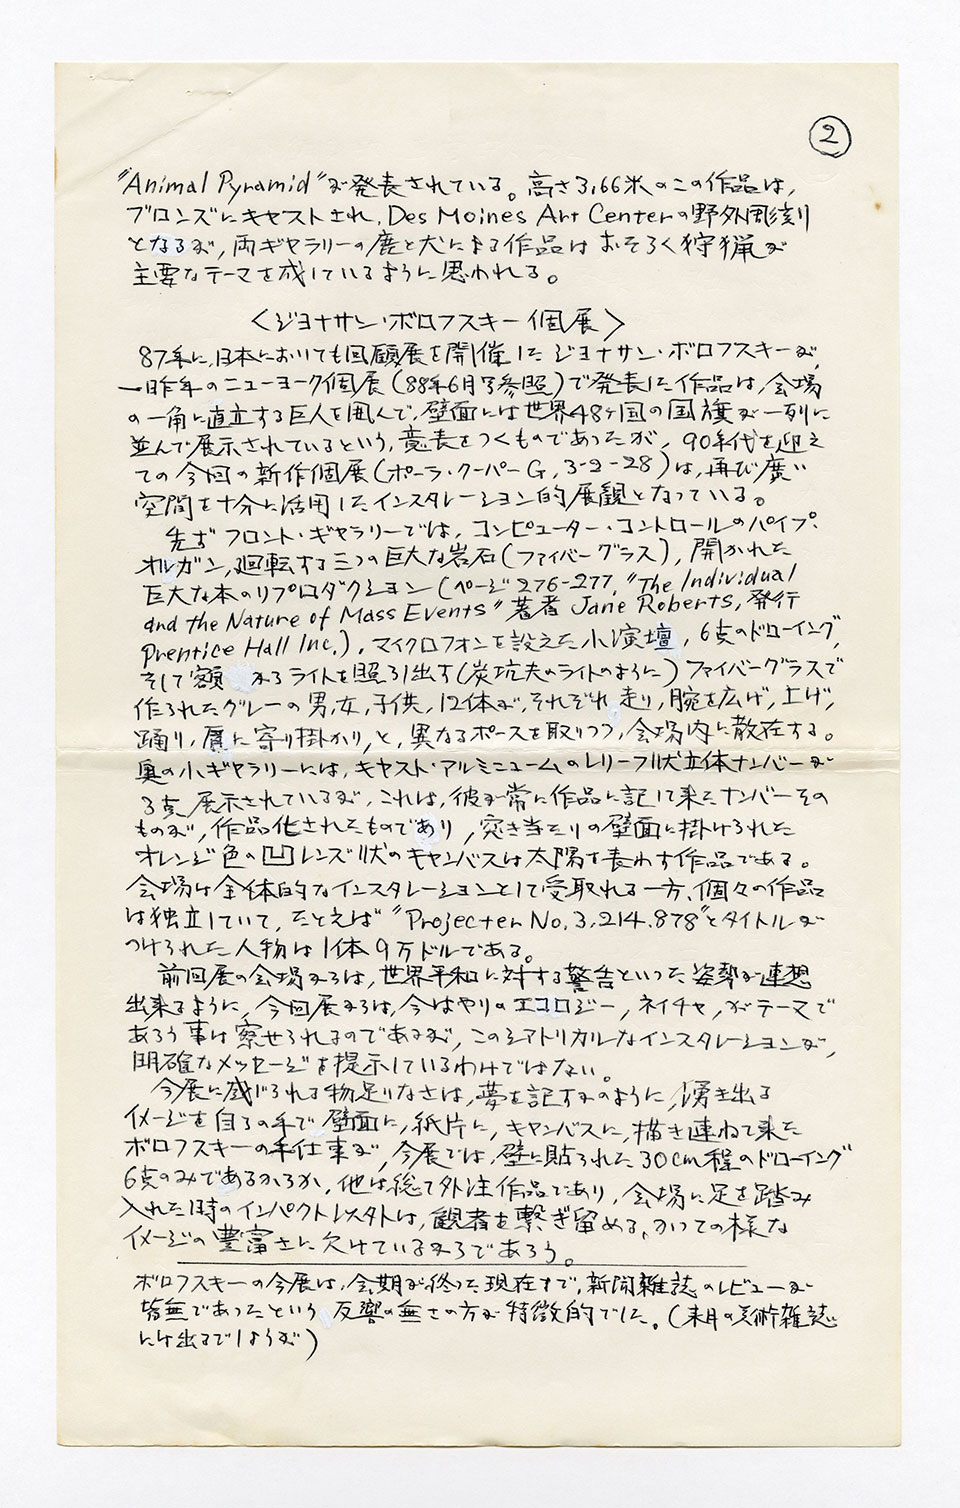 ②
"Animal Pyramid"が発表されている。高さ3,66米のこの作品は,
ブロンズにキャストされ, Des Moines Art Centerの野外彫刻
となるが, 両ギャラリーの鹿と犬による作品はおそらく狩猟が
主要なテーマを成しているように思われる。
〈ジョナサン・ボロフスキー個展〉
87年に, 日本においても回顧展を開催したジョナサン・ボロフスキーが,
一昨年のニューヨーク個展(88年6月号参照)で発表した作品は, 会場
の一角に直立する巨人を囲んで, 壁面には世界48ヶ国の国旗が一列に
並んで展示されているという, 意表をつくものであったが, 90年代を迎え
ての今回の新作個展(ポーラ・クーパーG, 3-2-28)は, 再び広い
空間を十分に活用したインスタレーション的展観となっている。
先ずフロント・ギャラリーでは, コンピューター・コントロールのパイプ・
オルガン, 廻転する三つの巨大な岩石(ファイバーグラス), 開かれた
巨大な本のリプロダクション(ページ276-277, "The Individual
and the Nature of Mass Events" 著者 Jane Roberts, 発行
Prentice Hall Inc.), マイクロフォンを設えた小演壇, 6点のドローイング,
そして額からライトを照らし出す(炭坑夫のライトのように)ファイバーグラスで
作られたグレーの男, 女, 子供, 12体が, それぞれ, 走り, 腕を広げ, 上げ,
踊り, 壁に寄り掛かり, と, 異なるポースを取りつつ, 会場内に散在する。
奥の小ギャラリーには, キャスト・アルミニュームのレリーフ状立体ナンバーが
3点展示されているが, これは, 彼が常に作品に記して来たナンバーその
ものが, 作品化されたものであり, 突き当たりの壁面に掛けられた
オレンジ色の凹レンズ状のキャンバスは太陽を表わす作品である。
会場は全体的なインスタレーションとして受取れる一方, 個々の作品
は独立していて, たとえば "Projecter No. 3,214.878"とタイトルが
つけられた人物は1体9万ドルである。
前回展の会場からは, 世界平和に対する警告といった姿勢が連想
出来るように, 今回展からは, 今はやりのエコロジー, ネイチャ, がテーマで
あろう事は察せられるのであるが, このシアトリカルなインスタレーションが,
明確なメッセージを提示しているわけではない。
今展に感じられる物足りなさは, 夢を記すかのように, 湧き出る
イメージを自らの手で壁面に, 紙片に, キャンバスに, 描き連ねて来た
ボロフスキーの手仕事が, 今展では, 壁に貼られた30cm程のドローイング
6点のみであるからか, 他は総て外注作品であり, 会場に足を踏み
入れた時のインパクト以外は, 観者を繋ぎ留める, かつての様な
イメージの豊富さに欠けているからであろう。
ボロフスキーの今展は, 会期が終った現在まで, 新聞雑誌のレビューが
皆無であったという, 反響の無さの方が特徴的でした。(来月の美術雑誌
には出るでしょうが)